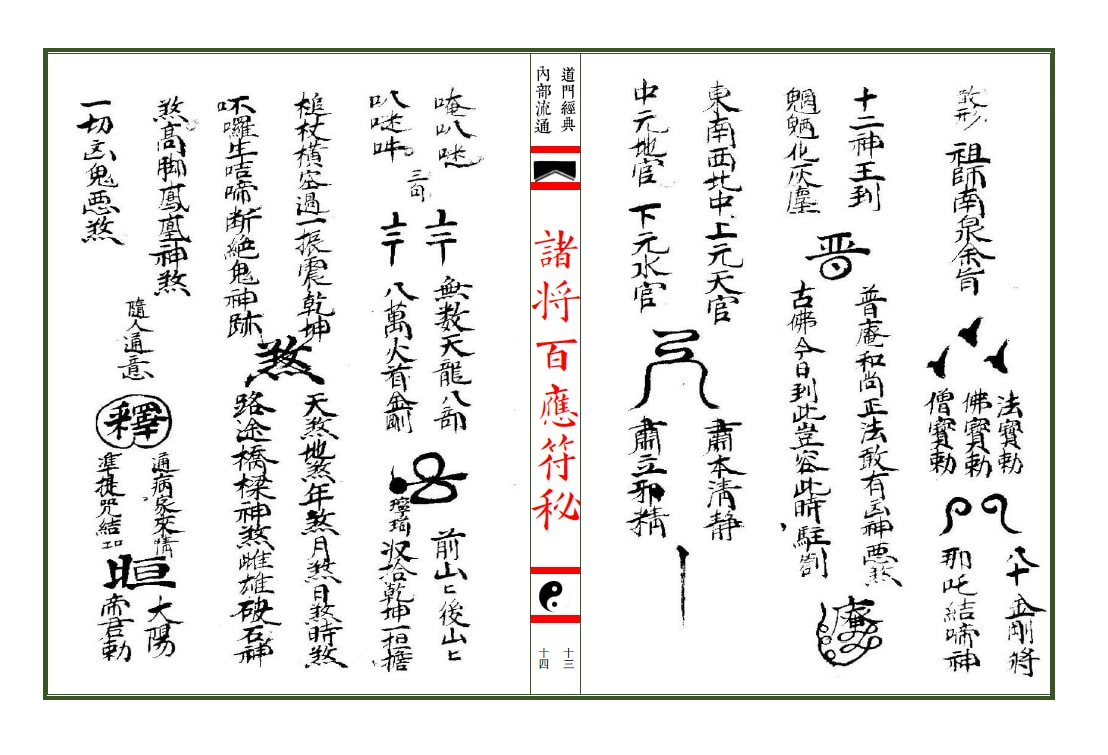 散形
祖師南泉余旨
法寶勅
佛寶勅
僧寶勅
八十金剛將
那吒結啼神
十二神王到
魍魎化灰塵
普
普庵和尚正法敢有凶神惡煞
古佛今日到此豈容此時駐劄
庵
東南西北中上元天官
中元地官下元水官
肅本清静
肅立邪精
道門經典
內部流通
諸将百應符秘
十三
十四
唵叭𠱀
叭𠱀吽
三句
無数天龍八部
八萬火首金剛
前山ヒ後山ヒ
收拾乾坤一担擔
槌杖横空過一振震乾坤
呸囉生咭啼断絶鬼神跡
煞
天煞地煞年煞月煞日煞時煞
路途橋樑神煞雌雄破石神
煞高脚鳳凰神煞
一切凶鬼惡煞
隨人通意
釋
通病家來情
準提咒結
晅
大陽
帝君勅